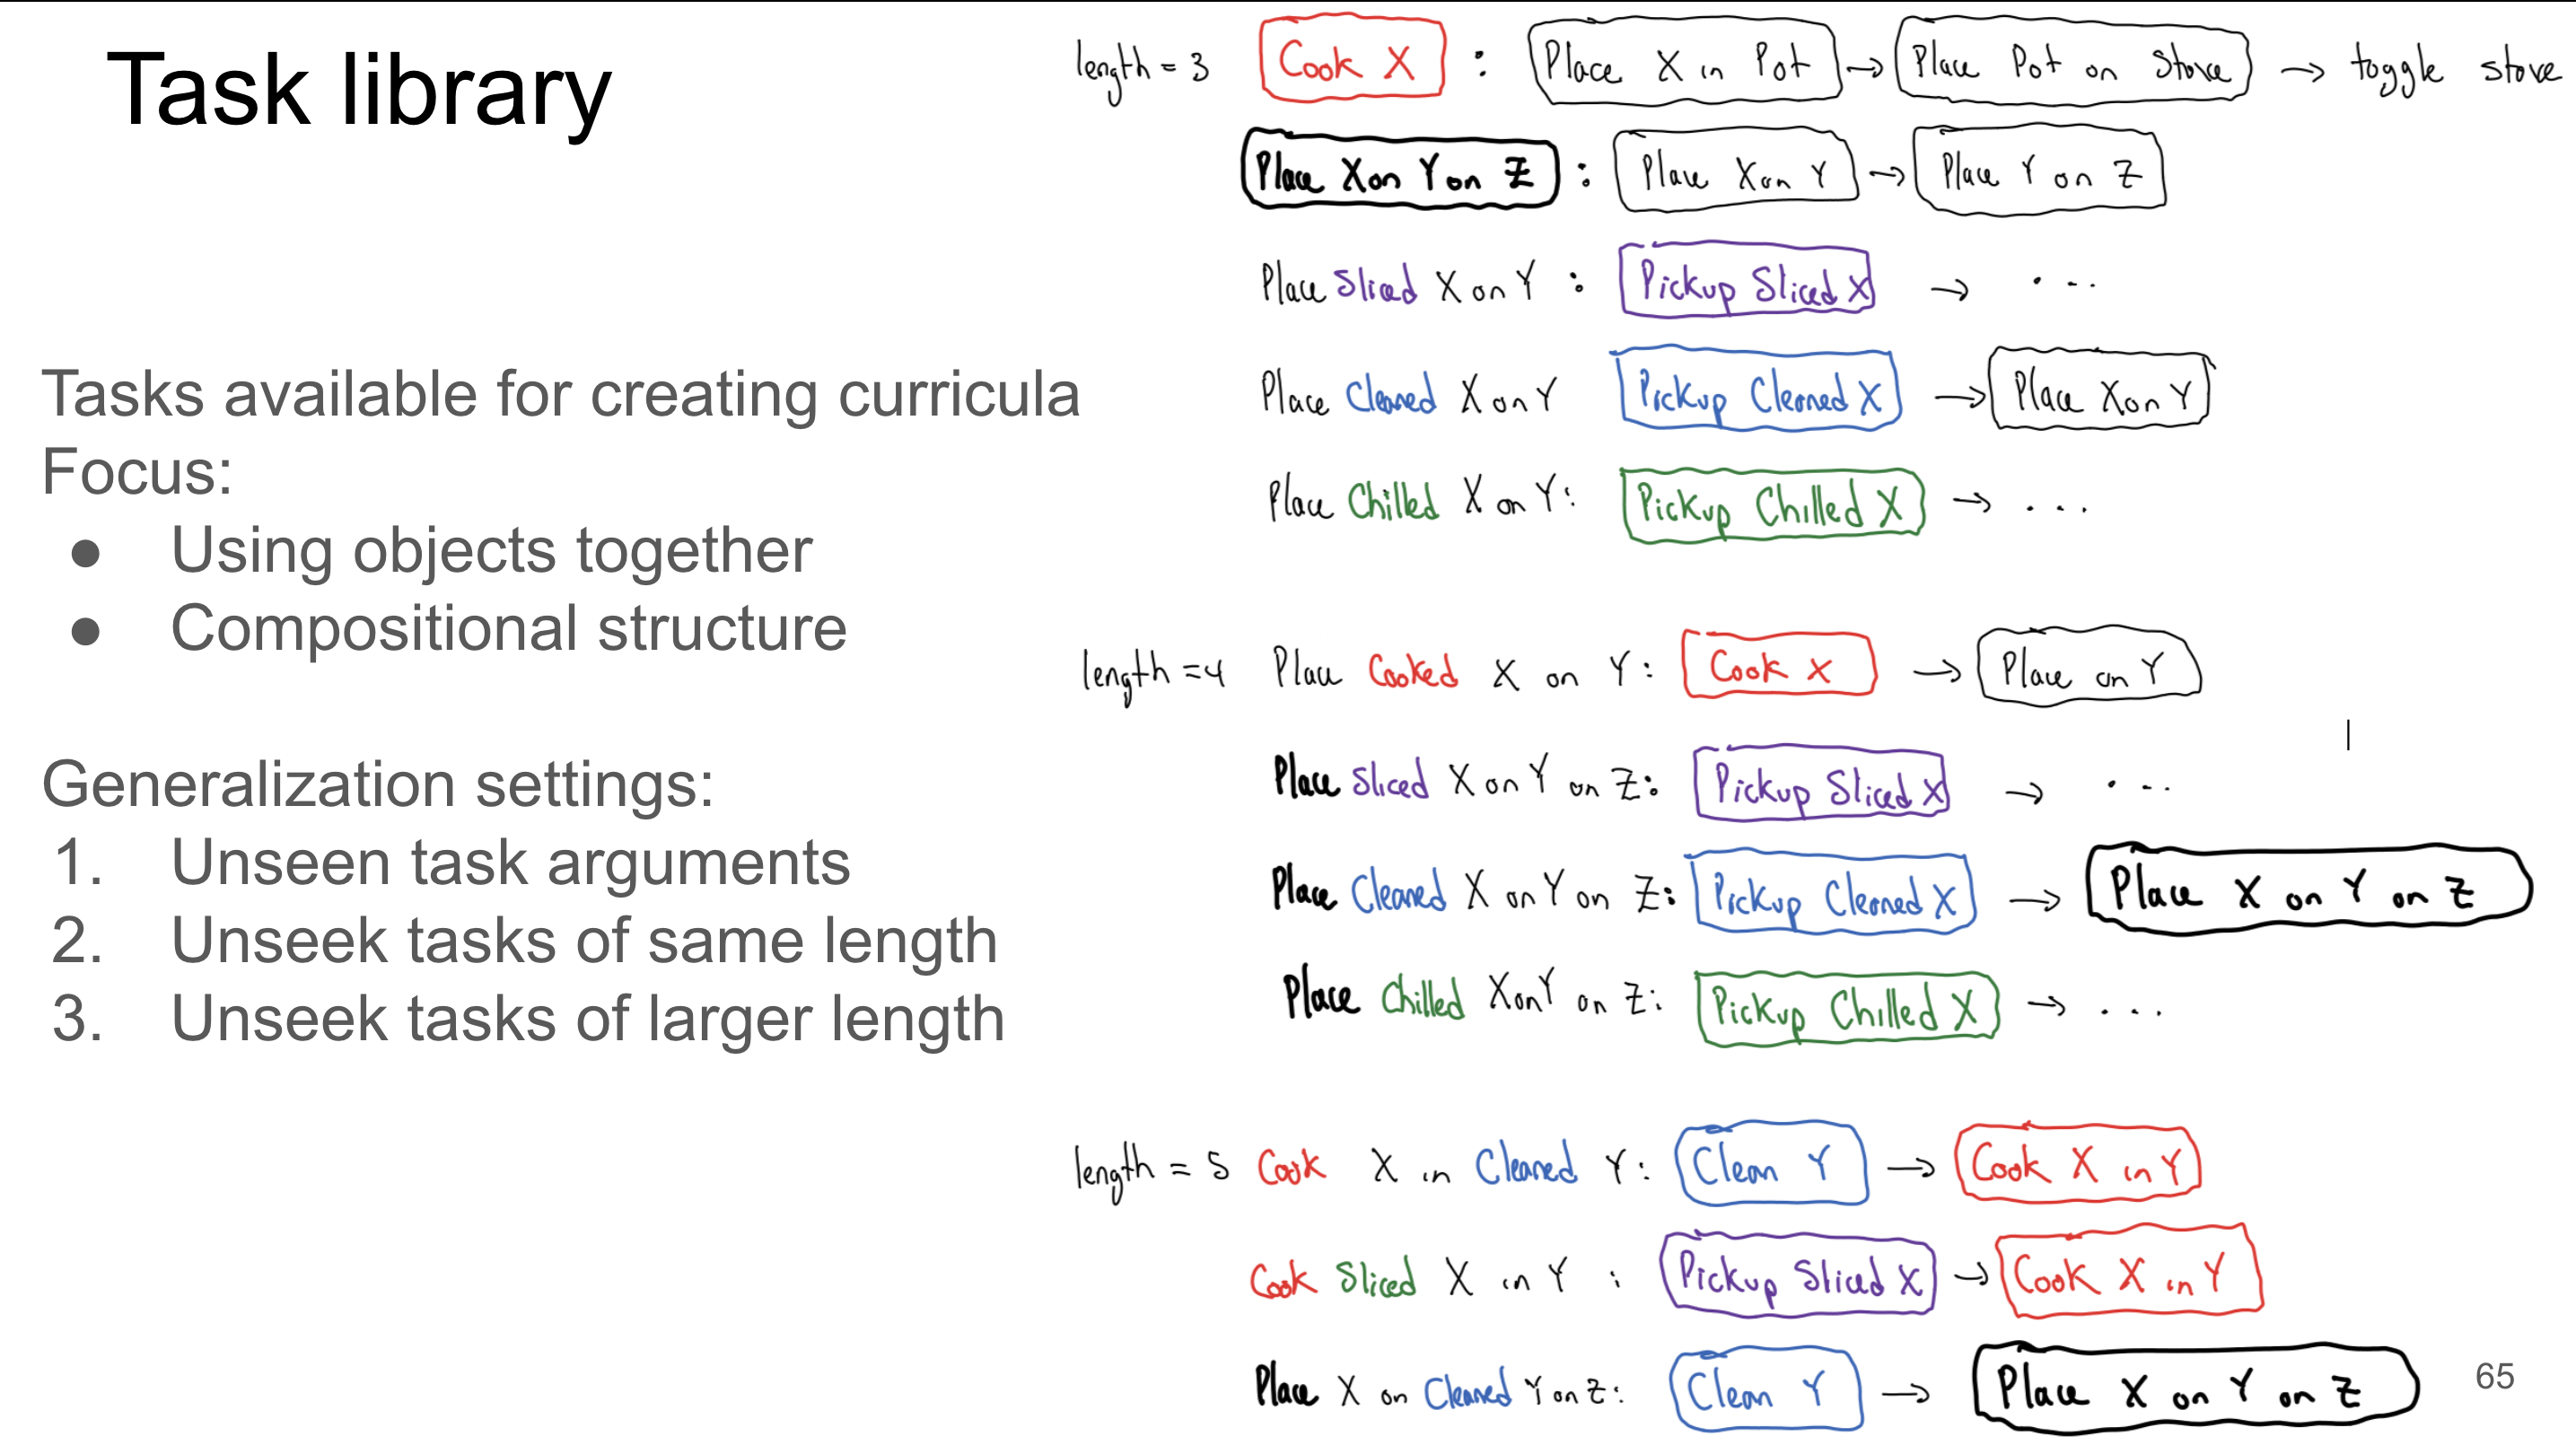 Task library
Tasks available for creating curricula
Focus:
● Using objects together
● Compositional structure
Generalization settings:
1. Unseen task arguments
2. Unseek tasks of same length
3. Unseek tasks of larger length
length = 3 Cook X : Place X in Pot → Place Pot on Stove → toggle stove
Place X on Y on Z : Place X on Y → Place Y on Z
Place Sliced X on Y : Pickup Sliced X → ...
Place Cleaned X on Y Pickup Cleaned X → Place X on Y
Place Chilled X on Y : Pickup Chilled X → ...
length = 4 Place Cooked X on Y : Cook X → Place on Y
Place Sliced X on Y on Z : Pickup Sliced X → ...
Place Cleaned X on Y on Z : Pickup Cleaned X → Place X on Y on Z
Place Chilled X on Y on Z : Pickup Chilled X → ...
length = 5 Cook X in Cleaned Y : Clean Y → Cook X in Y
Cook Sliced X in Y : Pickup Sliced X → Cook X in Y
Place X on Cleaned Y on Z : Clean Y → Place X on Y on Z
65